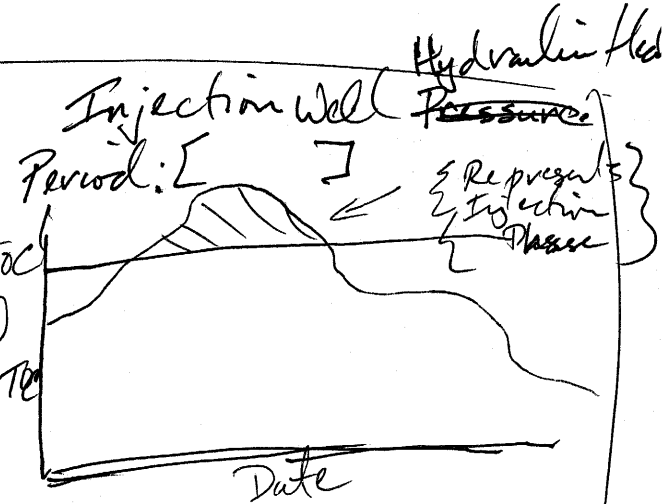 Hydraulic Head
Injection Well Pressure
Period: [ ]
{ Represents }
Injection
Phase
TOC
Date